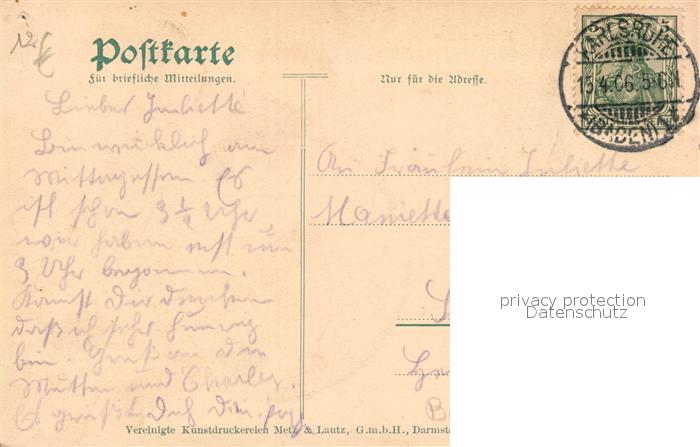 12.
Postkarte
Für briefliche Mitteilungen.
Nur für die Adresse.
KARLSRUHE
13.4.06.5-6N
(BADEN)
Liebes Juliette
Bin wirklich am
Mittagessen. Es
ist schon 3 1/2 Uhr
wir haben erst um
3 Uhr begonnen.
Kannst Dir denken
daß ich sehr hungrig
bin. Grüße an die
Mutter und Charles.
Es grüßt Dich
An Fräulein Juliette
privacy protection
Datenschutz
Vereinigte Kunstdruckereien Metz & Lautz, G.m.b.H., Darmsta